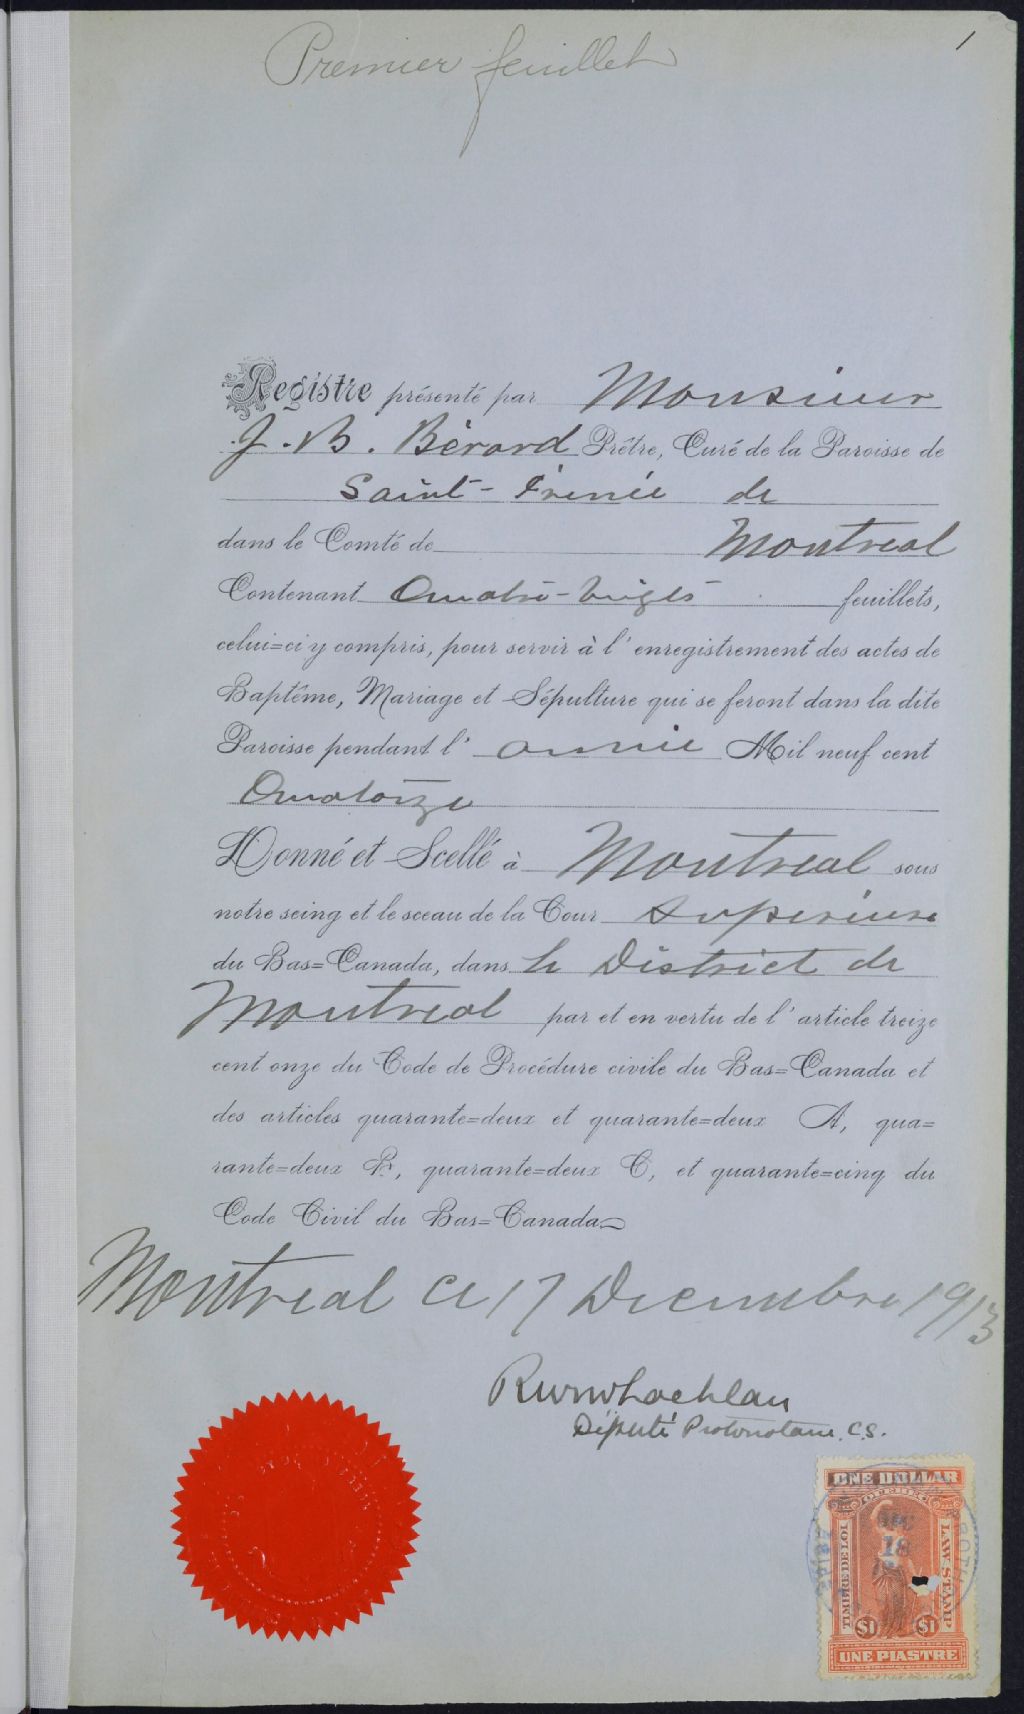 Premier feuillet
1
Registre présenté par Monsieur
J. B. Bérard Prêtre, Curé de la Paroisse de
Saint-Irénée de
dans le Comté de Montreal
Contenant Quatre-Vingts feuillets,
celui=ci y compris, pour servir à l'enregistrement des actes de
Baptême, Mariage et Sépulture qui se feront dans la dite
Paroisse pendant l'année Mil neuf cent
Quatorze
Donné et Scellé à Montreal sous
notre seing et le sceau de la Cour Superieure
du Bas=Canada, dans le District de
Montreal par et en vertu de l'article treize
cent onze du Code de Procédure civile du Bas=Canada et
des articles quarante=deux et quarante=deux A, qua=
rante=deux B, quarante=deux C, et quarante=cinq du
Code Civil du Bas=Canada
Montreal ce 17 Decembre 1913
Député Protonotaire. C.S.
ONE DOLLAR
QUEBEC
TIMBRE DE LOI
LAW STAMP
DEC
18
$1 $1
UNE PIASTRE